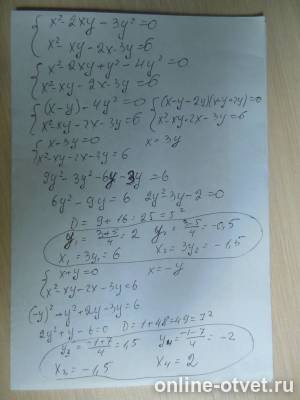 x² - 2xy - 3y² = 0
x² - xy - 2x - 3y = 6
x² - 2xy + y² - 4y² = 0
x² - xy - 2x - 3y = 6
(x-y) - 4y² = 0 (x-y-2y)(x-y+2y) = 0
x² - xy - 2x - 3y = 6 x² - xy - 2x - 3y = 6
x - 3y = 0 x = 3y
x² - xy - 2x - 3y = 6
9y² - 3y² - 6y - 3y = 6
6y² - 9y = 6 2y² 3y - 2 = 0
D = 9 + 16 = 25 = 5²
y₁ = 3+5/4 = 2 y₂ = 3-5/4 = -0,5
x₁ = 3y₁ = 6 x₂ = 3y₂ = -1,5
x + y = 0 x = -y
x² - xy - 2x - 3y = 6
(-y)² + y² + 2y - 3y = 6
2y² + y - 6 = 0 D = 1 + 48 = 49 = 7²
y₃ = -1+7/4 = 1,5 y₄ = -1-7/4 = -2
x₃ = -1,5 x₄ = 2
online-otvet.ru